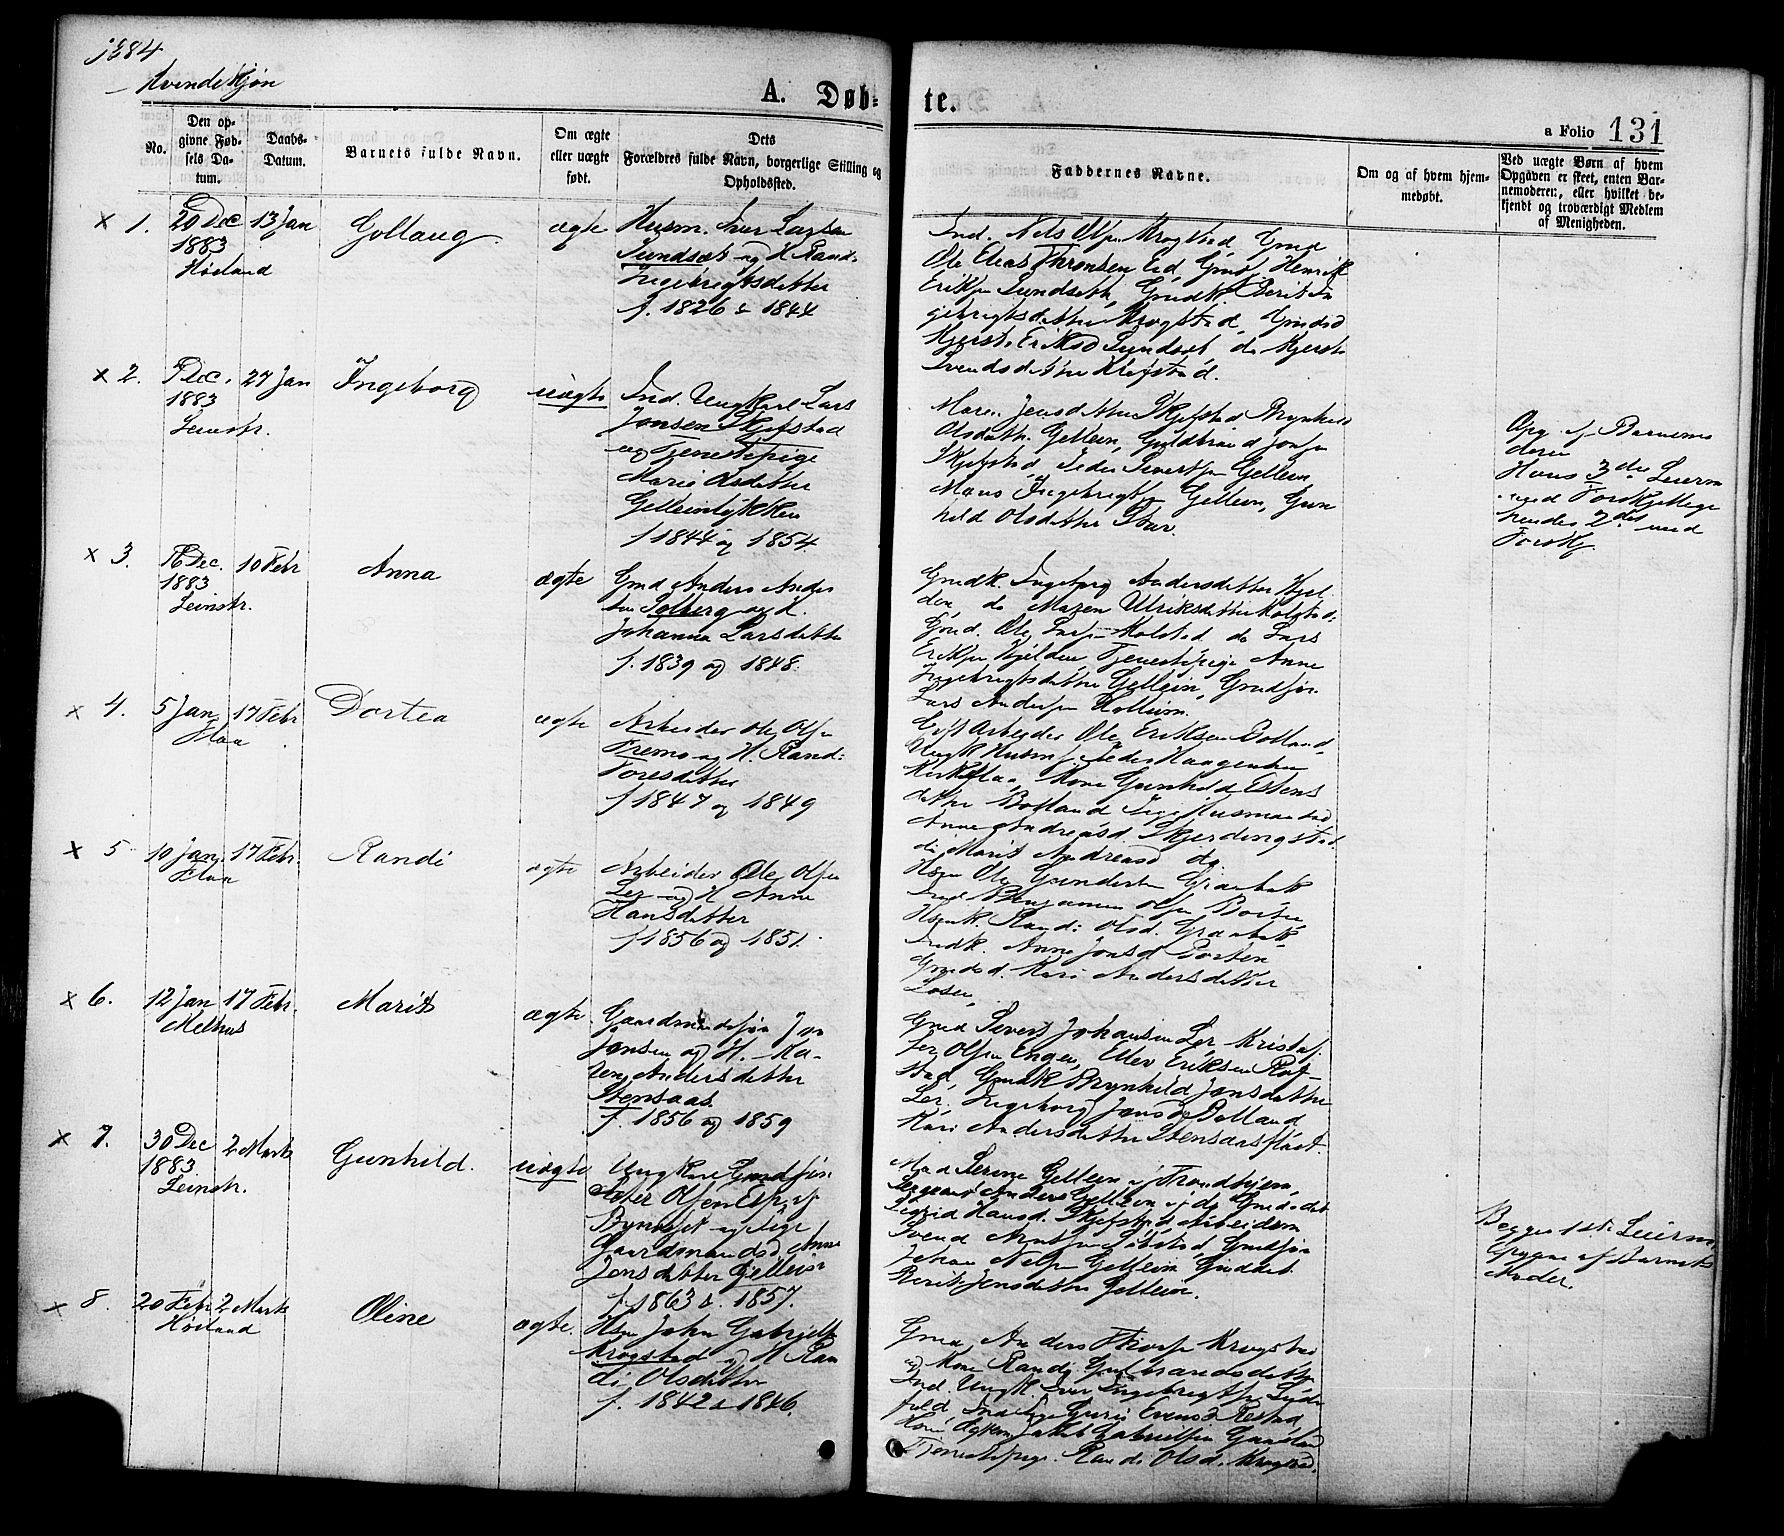 1884
Kvindekjøn
A. Døb-
te.
a Folio 131
No.
Den op-
givne Fød-
sels Da-
tum.
Daabs-
Datum.
Barnets fulde Navn.
Om ægte
eller uægte
født.
Dets
Forældres fulde Navn, borgerlige Stilling og
Opholdssted.
Faddernes Navne.
Om og af hvem hjem-
medøbt.
Ved uægte Børn af hvem
Opgaven er skeet, enten Bar-
nemoderen, eller hvilket be-
kjendt og troværdigt Medlem
af Menigheden.
x 1.
20 Dec
1883
Høiland
13 Jan
Gollaug.
ægte
Husm. Iver Larsen
Sundset og H. Rand:
Ingebrigtsdatter
f. 1826 & 1844
Ind. Nels Olsen Krogstad, Gmd
Ole Elias Thronsen Eid, Gmdsf Henrik
Eriksen Sundseth, Gmdk Berit In
gebrigtsdatter Krogstad, Gmdsd
Kjersti Eriksd Sundset, do Kjersti
Svendsdatter Krogstad.
x 2.
Dec.
1883
Leinstr.
27 Jan
Ingeborg
uægte
Ind. Ungkarl Lars
Jonsen Skjefstad
og Tjenestepige
Marie Olsdatter
Gelleinlykken
f 1844 og 1854
Maren Jensdatter Skjefstad Brynhild
Olsdatter Gellein, Guldbrand Jonsen
Skjefstad, Peder Sivertsen Gellein,
Mons Ingebrigtsen Gellein, Gun
hild Olsdatter
Opg. af Barnemo
deren
Hans 3die Leierm
med Forskjellige
hendes 2det med
Forskj.
x 3.
16 Dec.
1883
Leinstr.
10 Febr
Anna
ægte
Gmd Anders Ander
sen Solberg og H.
Johanna Larsdatter
f. 1839 og 1848.
Gmdk. Ingeborg Andersdatter Kjel
den, do Maren Ulriksdatter Kolstad,
Gmd. Ole Larsen Kolstad do Lars
Eriksen Kjelden, Tjenestepige Anne
Ingebrigtsdatter Gellein, Gmdsøn
Lars Andersen
x 4.
5 Jan
Flaa
17 Febr
Dortea
ægte
Arbeider Ole Olsen
Fremo og H. Rand:
Toresdatter
f 1847 og 1849
Gift Arbeider Ole Eriksen Bolland
Ungk Husmf. Peder Haagensen
Kirkflaa, Kone Gunhild Estens
datter Bolland Pige Husmandsd
Anne Andreasd. Skjerdingstad
do Marit Andreasd do.
x 5
10 Jan
Flaa
17 Febr.
Randi
ægte
Arbeider Ole Olsen
Ler og H Anne
Hansdatter
f 1856 og 1851.
Hsm Ole Gundersen Graabak
Ind Benjamin Olsen Borten
Hsmk. Randi Olsd. Graabak
Indk. Anne Jonsd Borten
Gmdsd. Kari Andersdatter
Losen,
x 6.
12 Jan
Melhus
17 Febr.
Marit
ægte
Gaardmandssøn Jon
Jonsen og H. Ka-
ren Andersdatter
Stensaas.
f. 1856 og 1859
Gmd Sivert Johansen Ler Kristof
fer Olsen Engen, Ellev Eriksen Rog-
stad, Gmdk Brynhild Jonsdatter
Ler, Ingeborg Jonsd Bolland
Kari Andersdatter Stensaas
x 7.
30 Dec
1883
Leinstr.
2 Marts
Gunhild.
uægte
Ungkarl Gmdsøn
Peter Olsen Esp af
Bynesset og Pige
Gaardmandsd. Anne
Jonsdatter Gellein
f. 1863 & 1857.
Mad Serine Gellein af Trondhjem,
Sergeant Anders Gellein af do Gmdsdat
Sigrid Hansd. Skjefstad Arbeider
Svend
Johan Nelsen Gellein Gmddat.
Berit Jensdatter Gellein.
Begges 1ste Leierm,
Opgave af Barnets
Moder.
x 8.
20 Febr
Høiland
2 Marts
Oline
ægte.
Hsm John Gabrielsen
Krogstad og H Ran
di Olsdatter
f. 1842 & 1846.
Gmd Anders Thorsen Krogstad
og Kone Randi Gulbrandsdatter,
Ind. Ungk. Iver Ingebrigtsen
Ind Pige Guri Evensd Restad
Jakob Gabrielsen
Tjenestepige Randi Olsd. Krogstad.